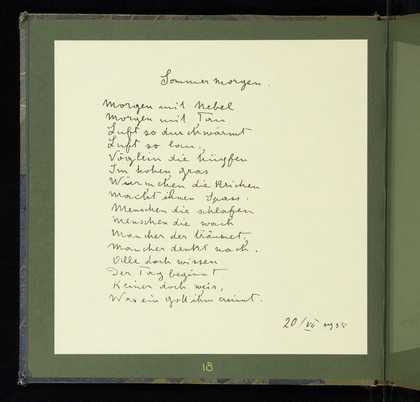 Sommermorgen.
Morgen mit Nebel
Morgen mit Tau
Luft so durchwärmt
Luft so lau,
Vöglein die hüpfen
Im hohen gras
Würmchen die
Macht ihnen Spass.
Menschen die schlafen
Menschen die wach
Mancher der träumet,
Mancher denkt nach.
Alle doch wissen
Der Tag beginnt
Keiner doch weis,
Was ein gott ihm
20/VI 1935
18